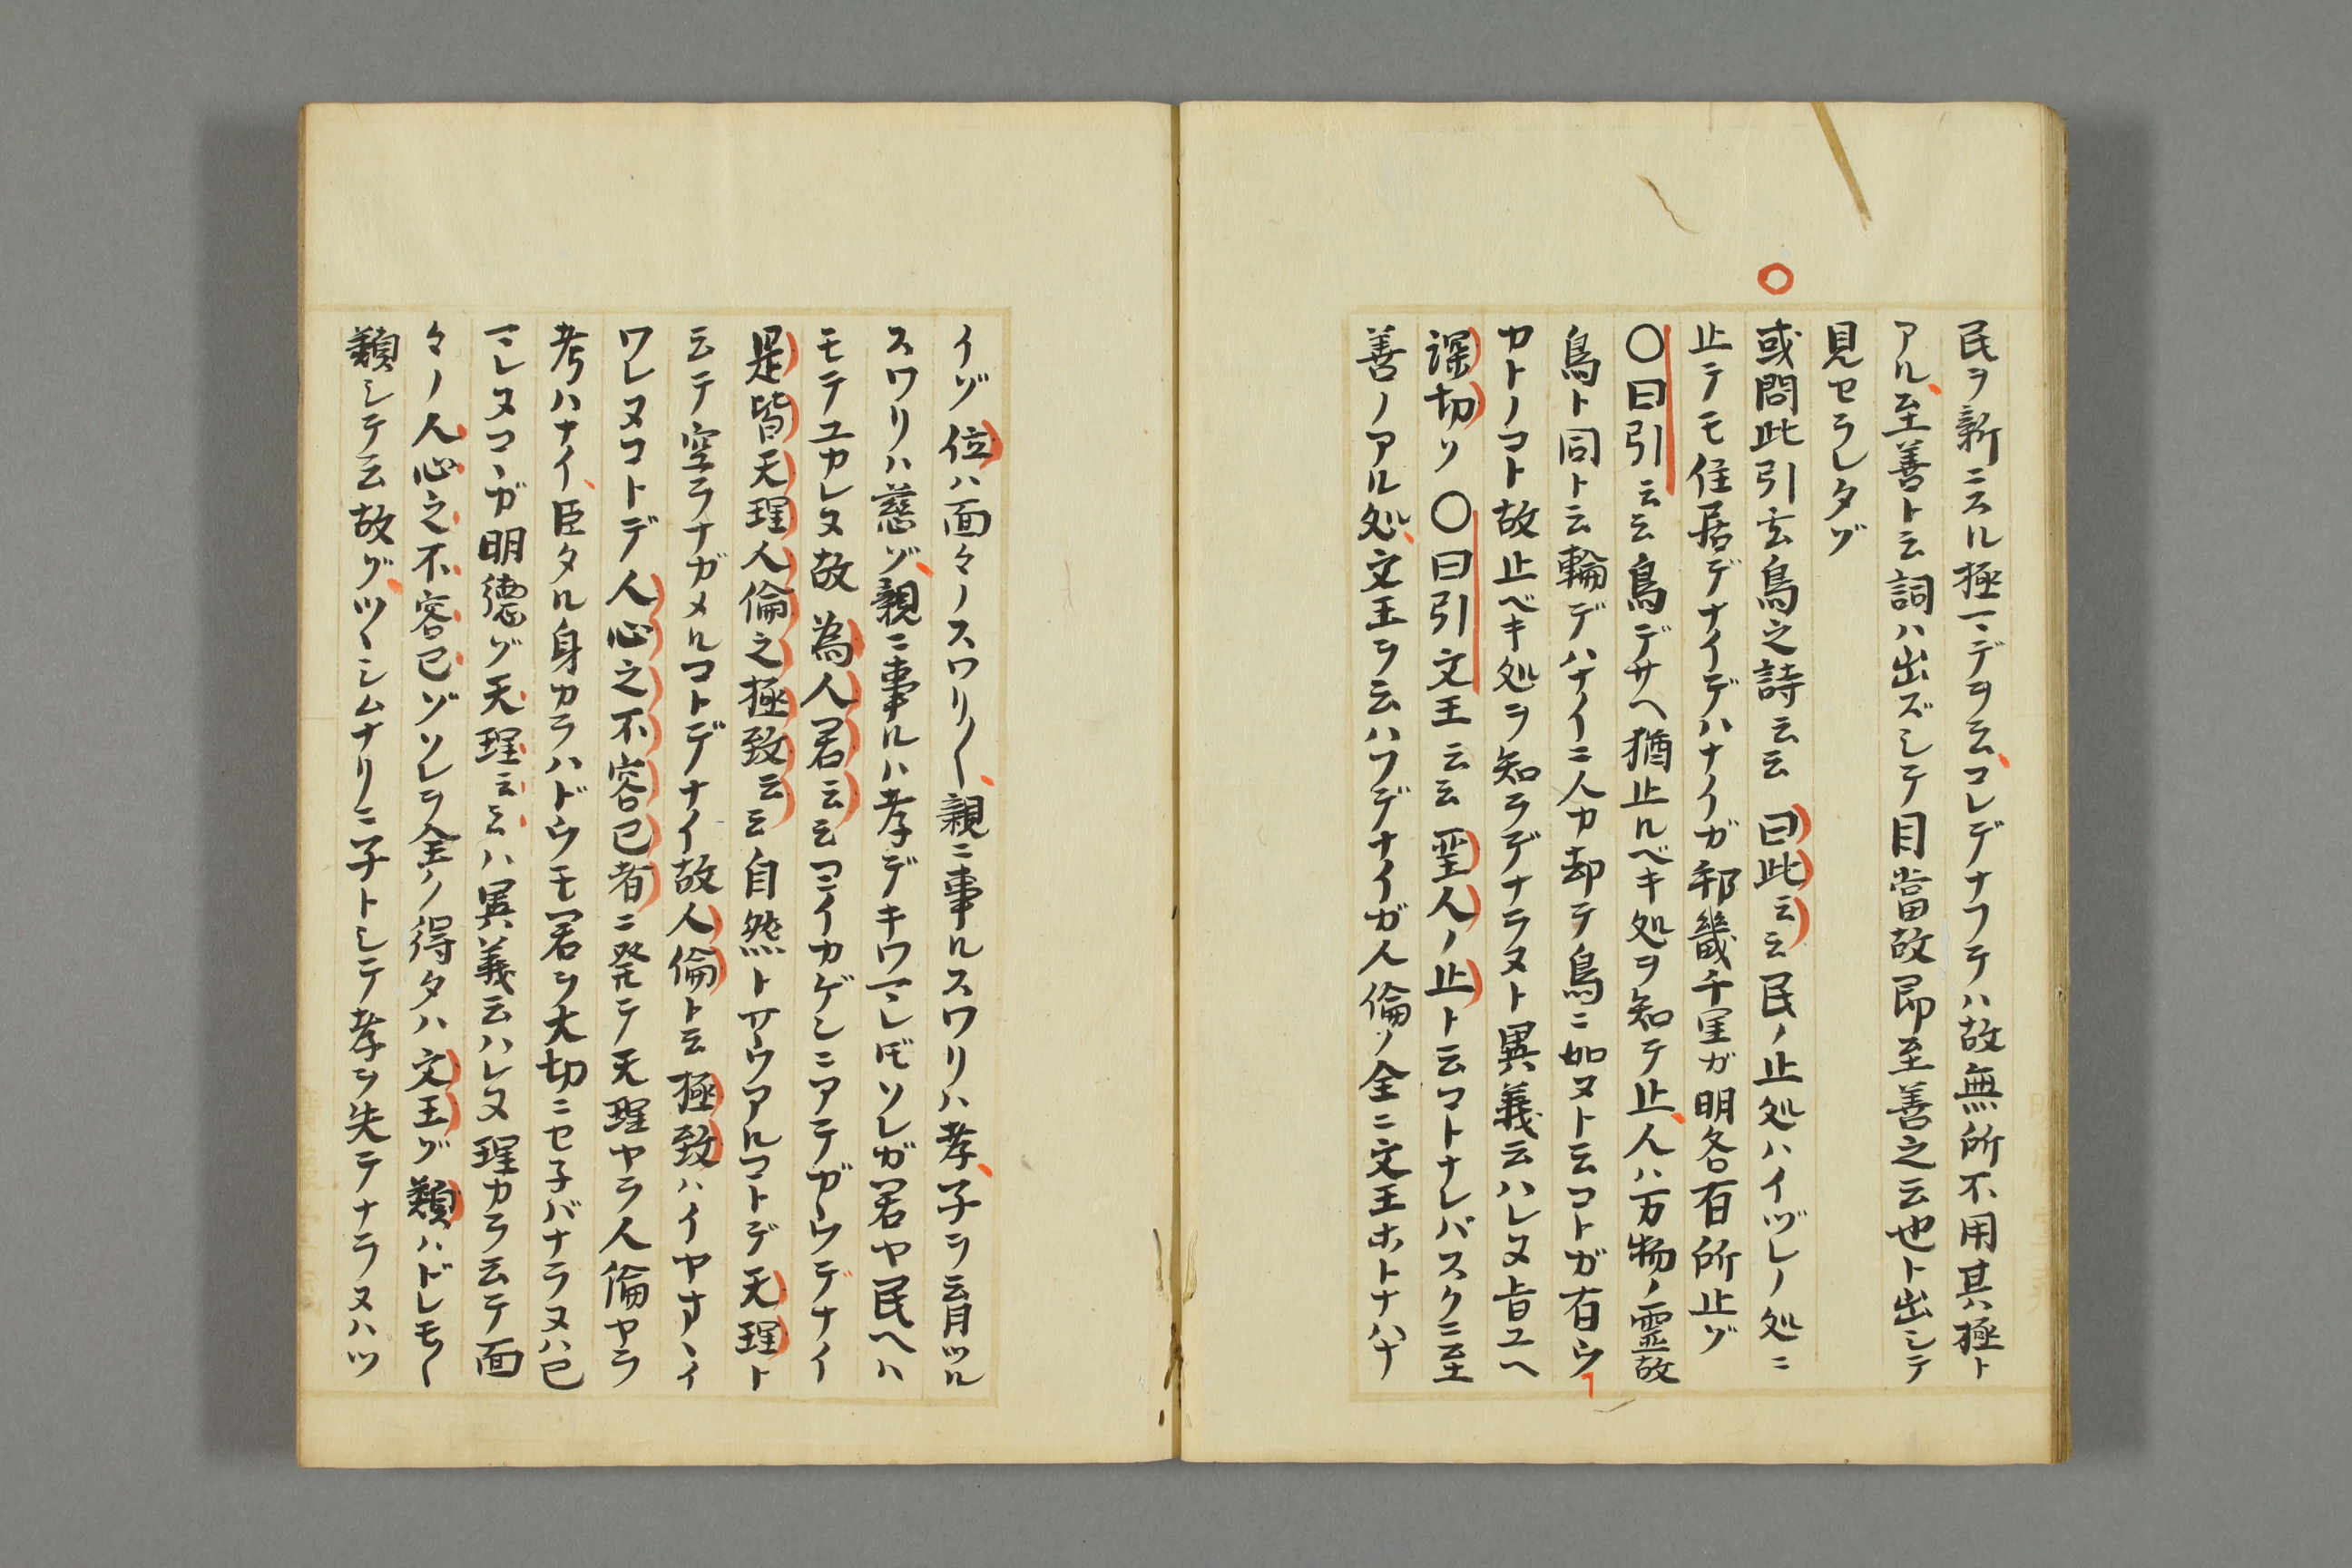 民ヲ新ニスル極マデヲ云コレデナフテハ故無所不用其極ト
アル至善ト云詞ハ出ズシテ目當故即至善之云也ト出シテ
見セラレタゾ
或問此引玄鳥之詩云云 曰此云云民ノ止処ハイヅレノ処ニ
止テモ住居デナイデハナイガ邦畿千里ガ明各有所止ゾ
〇曰引云云鳥デサヘ猶止ルベキ処ヲ知テ止人ハ万物ノ霊故
鳥ト同ト云輪デハナイニ人カ却テ鳥ニ如ヌト云コトガ有ウ
カトノコト故止ベキ処ヲ知ラデナラヌト異義云ハレヌ旨ユヘ
深切ソ〇曰引文王云云聖人ノ止ト云コトナレバスクニ至
善ノアル処文王ヲ云ハフデナイガ人倫ノ全ニ文王ホトナハナ
イゾ位ハ面々ノスワリ〱親ニ事ルスワリハ孝子ヲ育ツル
スワリハ慈ゾ親ニ事ルハ孝デキワマレ𪜈ソレガ君ヤ民ヘハ
モテユカレヌ故為人君云云コマイカゲンニアテガウデナイ
是皆天理人倫之極致云云自然トサウアルコトデ天理ト
云テ空ヲナガメルコトデナイ故人倫ト云極致ハイヤヽイ
ワレヌコトデ人心之不容已者ニ発テ天理ヤラ人倫ヤラ
考ハナイ臣タル身カラハドウモ君ヲ大切ニセ子バナラヌハ已
マレヌコヽガ明徳ゾ天理云云ハ異義云ハレヌ理カラ云テ面
々ノ人心之不容已ゾソレヲ全ク得タハ文王ゾ類ハドレモ〱
類シテ云故ゾツヽシムナリニ子トシテ孝ヲ失テナラヌハツ